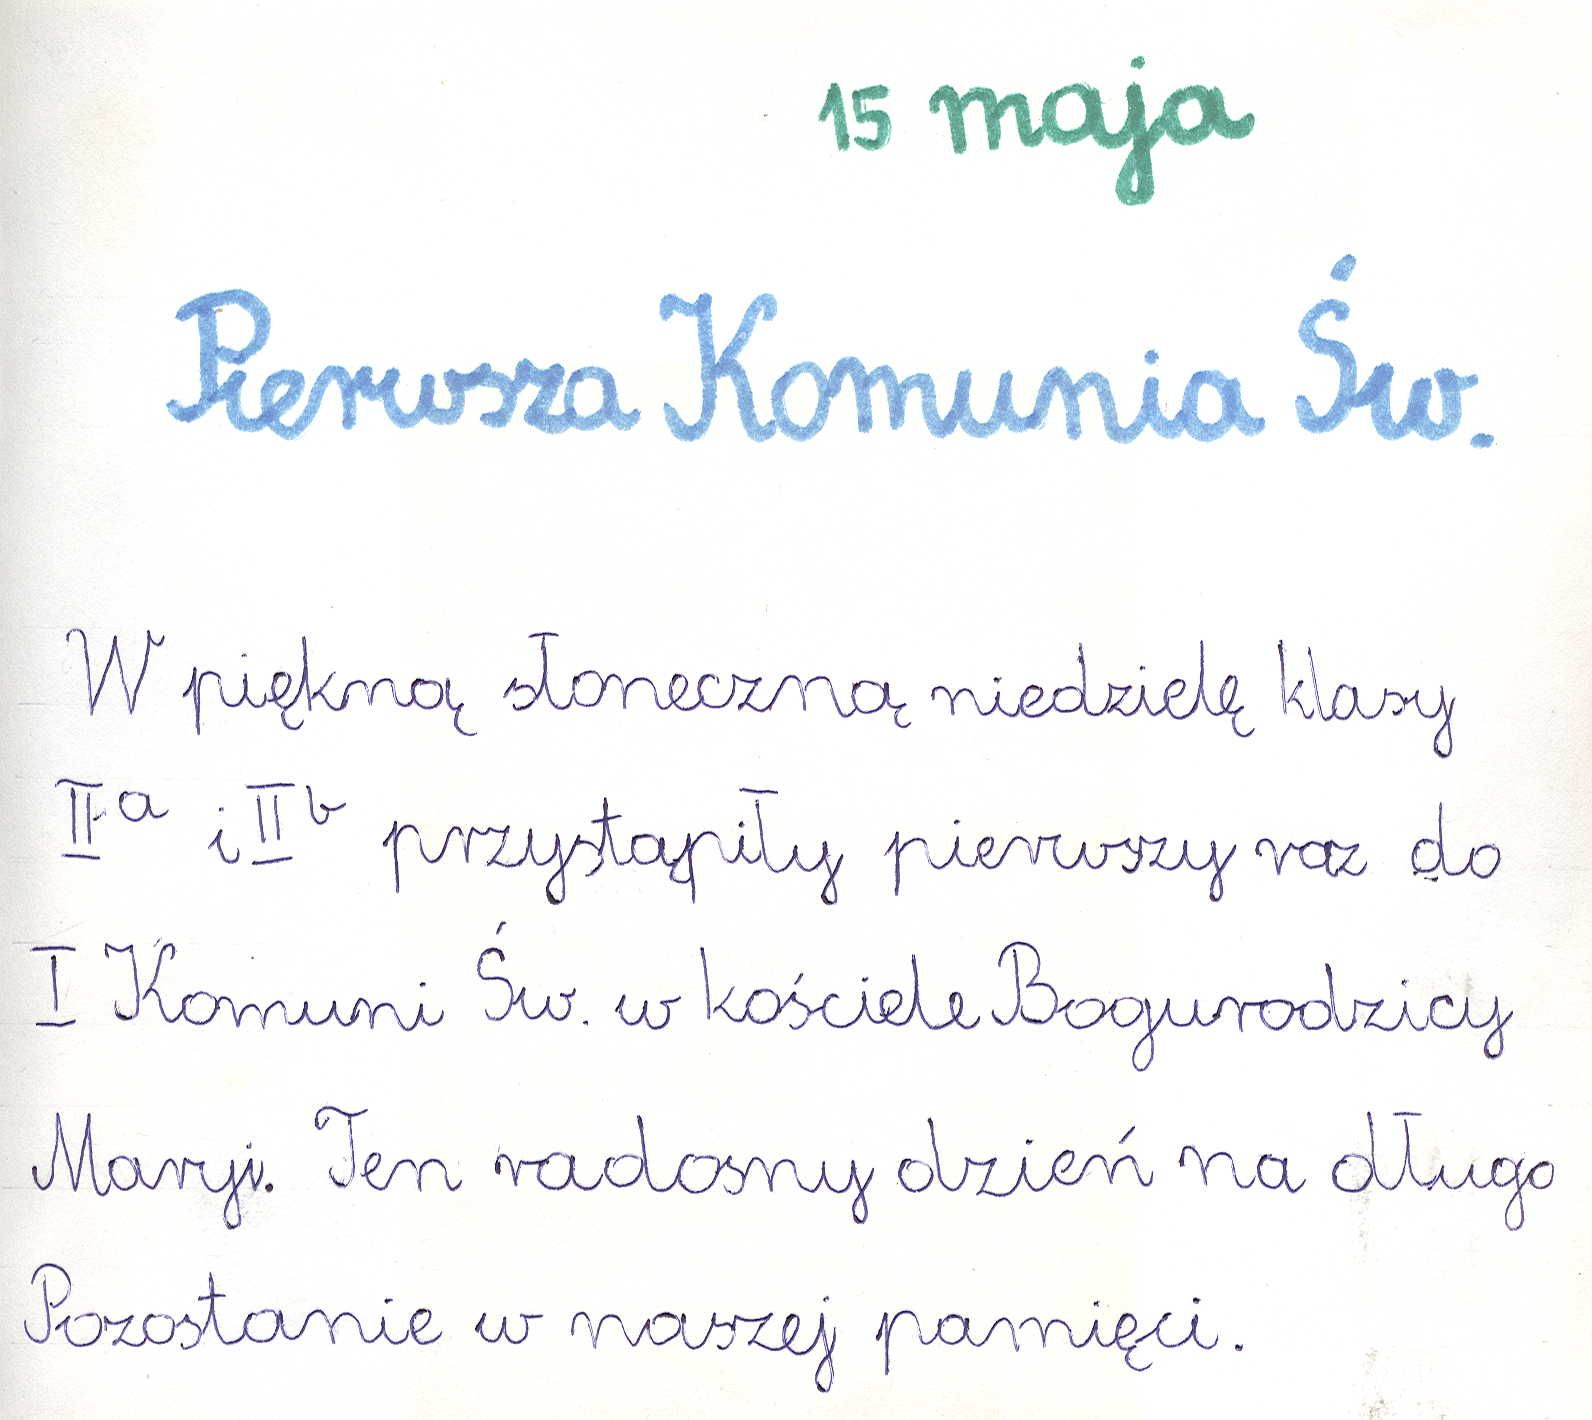 15 maja
Pierwsza Komunia Św.
W piękną słoneczną niedzielę klasy
IIa i IIb przystąpiły pierwszy raz do
I Komuni Św. w kościele Bogurodzicy
Maryji. Ten radosny dzień na długo
Pozostanie w naszej pamięci.